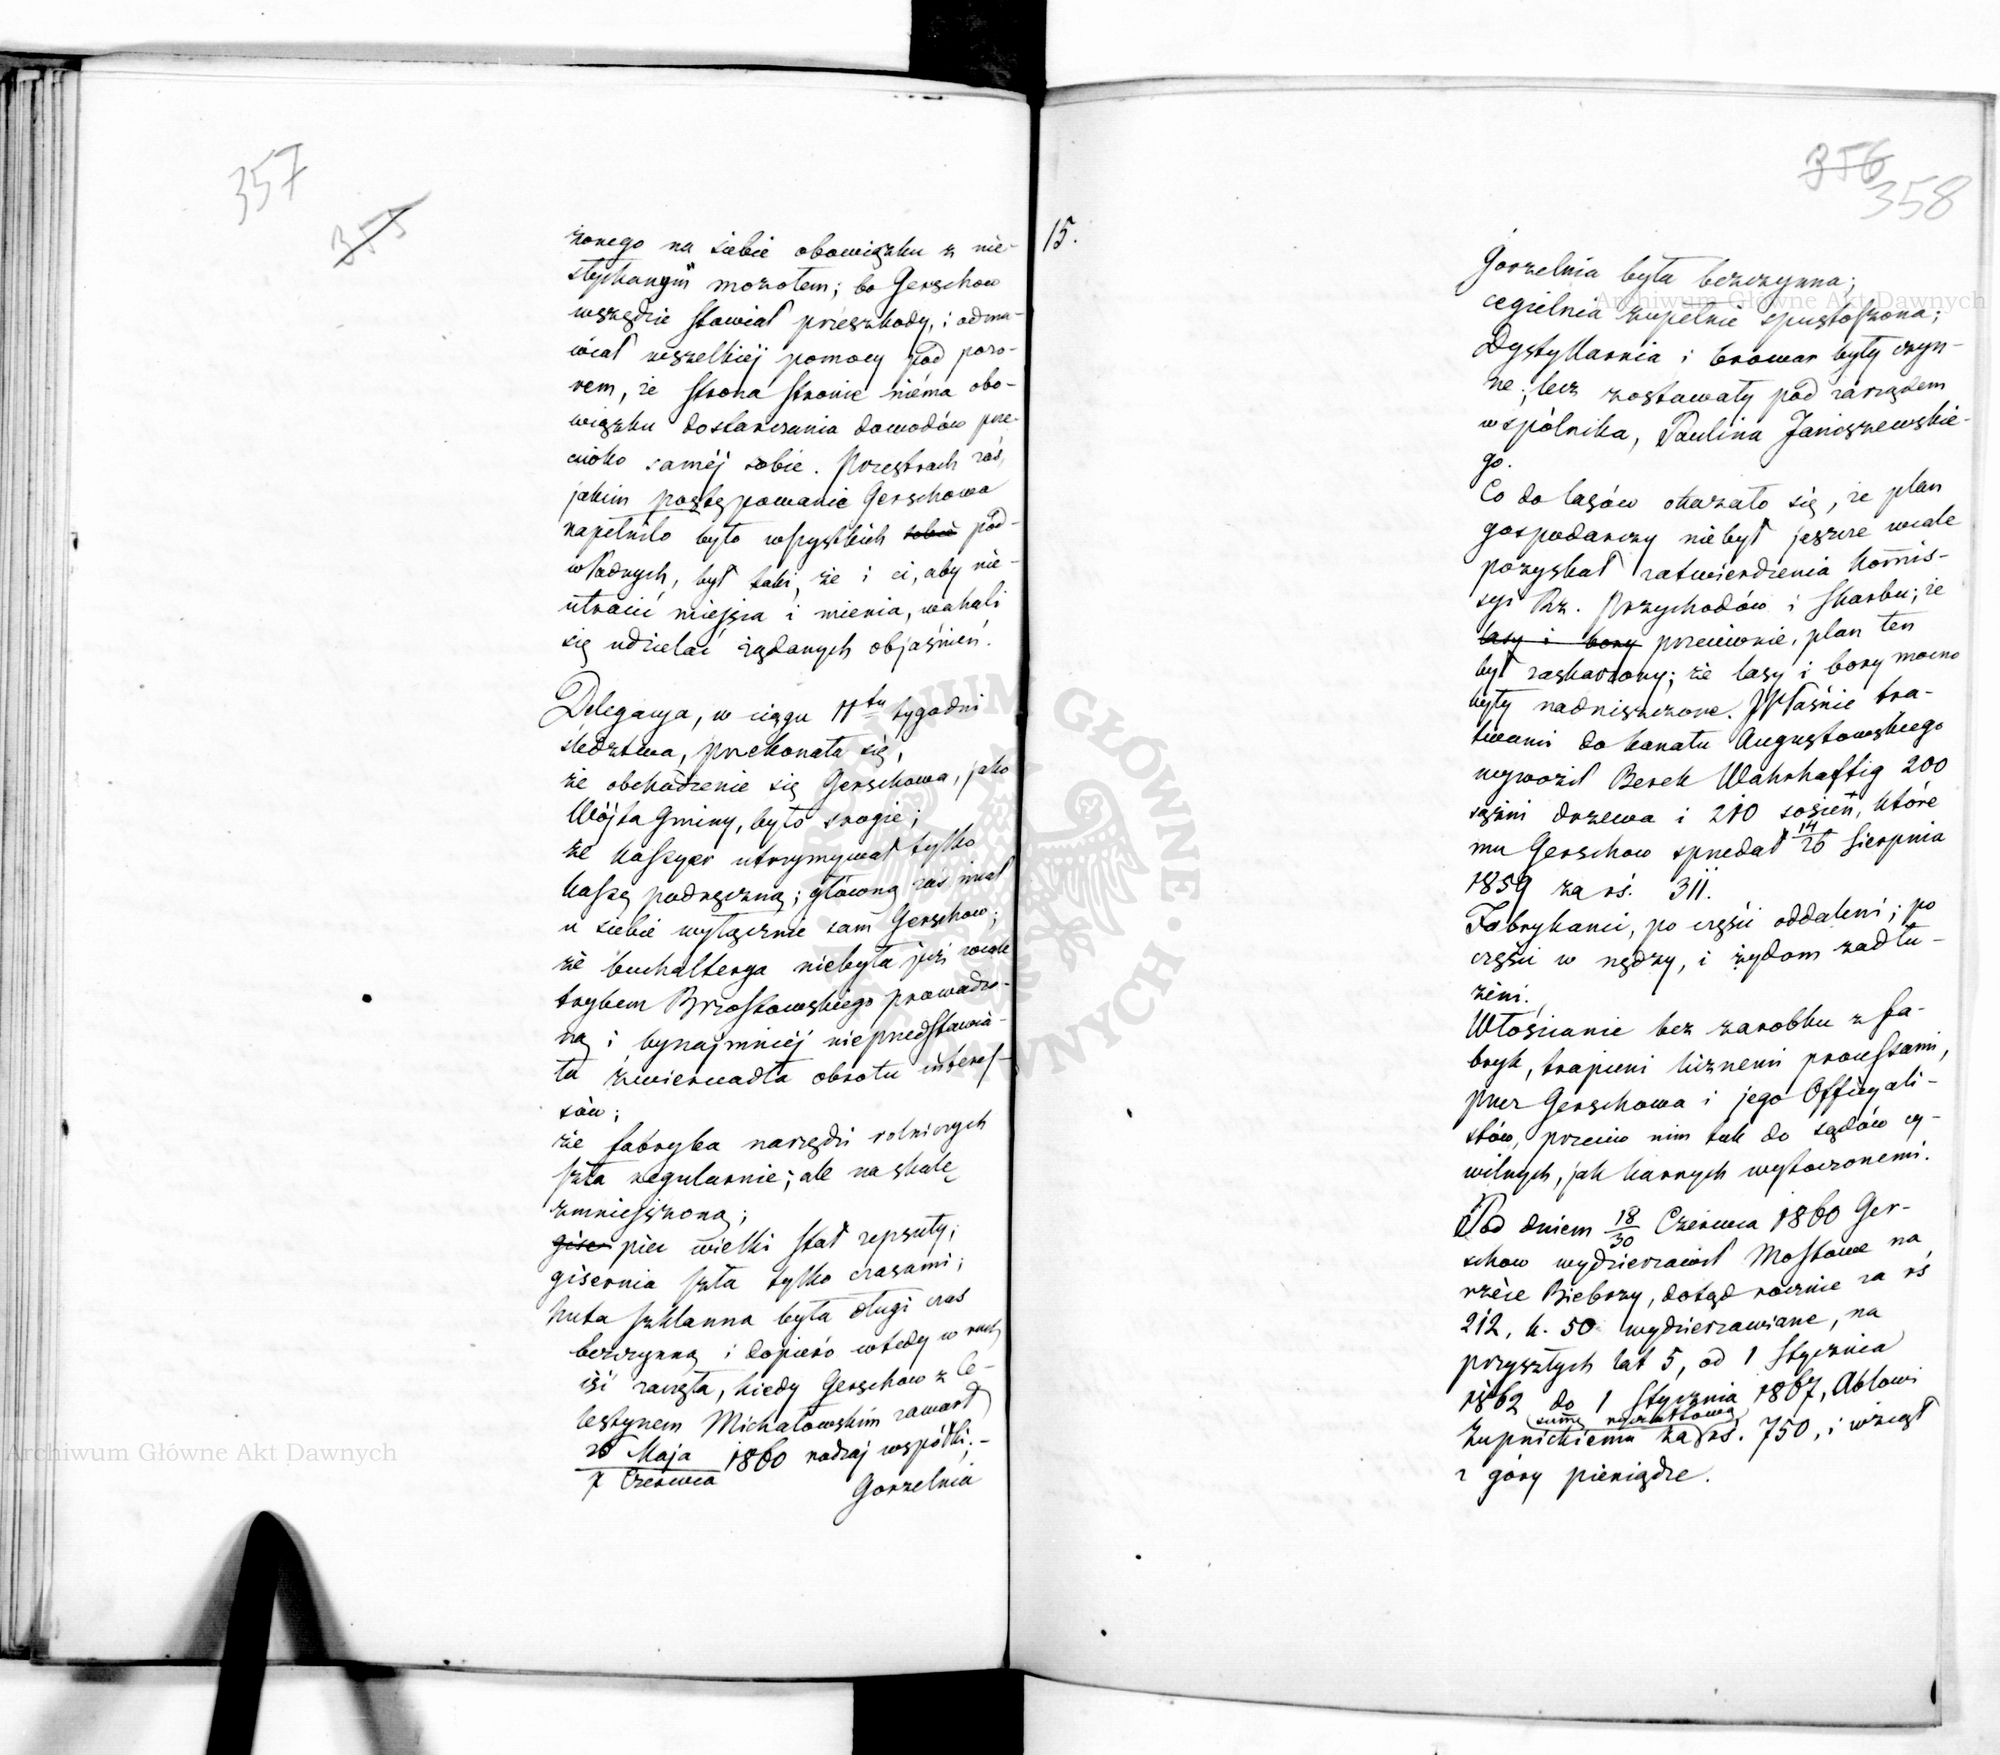 357
355
żonego na siebie obowiązku z nie-
słychanym mozołem; bo Gerschow
wszędzie stawiał przeszkody, i odma-
wiał wszelkiéj pomocy pod pozo-
rem, że strona stronie niema obo-
wiązku dostarczania dowodów prze-
ciwko saméj sobie. Przestrach zaś,
jakim postępowanie Gerschowa
napełniło było wszystkich sobie pod-
władnych, był taki, że i ci, aby nie-
utracić miejsca i mienia, wahali
się udzielać żądanych objaśnień.
Delegacya, w ciągu 11tu tygodni
śledztwa, przekonała się,
że obchodzenie się Gerschowa, jako
Wójta Gminy, było srogie;
że kassyer utrzymywał tylko
kassę podręczną; główną zaś miał
u siebie wyłącznie sam Gerschow;
że buchalterya niebyła już wcale
trybem Brzostowskiego prowadzo-
ną i bynajmniéj nieprzedstawia-
ła zwierciadła obrotu interes-
sów;
że fabryka narzędzi rolniczych
szła regularnie; ale na skalę
zmniejszoną;
gise piec wielki stał zepsuty;
gisernia szła tylko czasami;
huta szklanna była długi czas
bezczynną i dopiéro wtedy w ruch
iść zaczęła, kiedy Gerschow z Ce-
lestynem Michałowskim zawarł
26 Maja
7 Czerwca 1860 rodzaj współki;-
Gorzelnia
15.
356
358
Gorzelnia była bezczynna;
cegielnia zupełnie spustoszona;
Dystyllarnia i browar były czyn-
ne; lecz zostawały pod zarządem
wspólnika, Paulina Janiszewskie-
go.
Co do lasów okazało się, że plan
gospodarczy niebył jeszcze wcale
pozyskał zatwierdzenia Kommis-
syi Rz. Przychodów i Skarbu; że
lasy i bory przeciwnie, plan ten
był zaskarżony; że lasy i bory mocno
były nadniszczone. Właśnie tra-
twami do kanału Augustowskiego
wywoził Berek Wahrhaftig 200
sążni drzewa i 210 sosien, które
mu Gerschow sprzedał 14/26 Sierpnia
1859 za rś. 311.
Fabrykanci, po części oddaleni; po
części w nędzy, i żydom zadłu-
żeni.
Włościanie bez zarobku z fa-
bryk, trapieni licznemi processami,
przez Gerschowa i jego Officyali-
stów, przeciw nim tak do sądów cy-
wilnych, jak karnych wytoczonemi.
Pod dniem 18/30 Czerwca 1860 Ger-
schow wydzierżawił Mostowe na
rzéce Biebrzy, dotąd rocznie za rś
212, k. 50 wydzierżawiane, na
przyszłych lat 5, od 1 Stycznia
1862 do 1 Stycznia 1867, Ablowi
summę ryczałtową
Żupnickiemu za rś. 750, i wziął
z góry pieniądze.
Archiwum Główne Akt Dawnych
Archiwum Główne Akt Dawnych